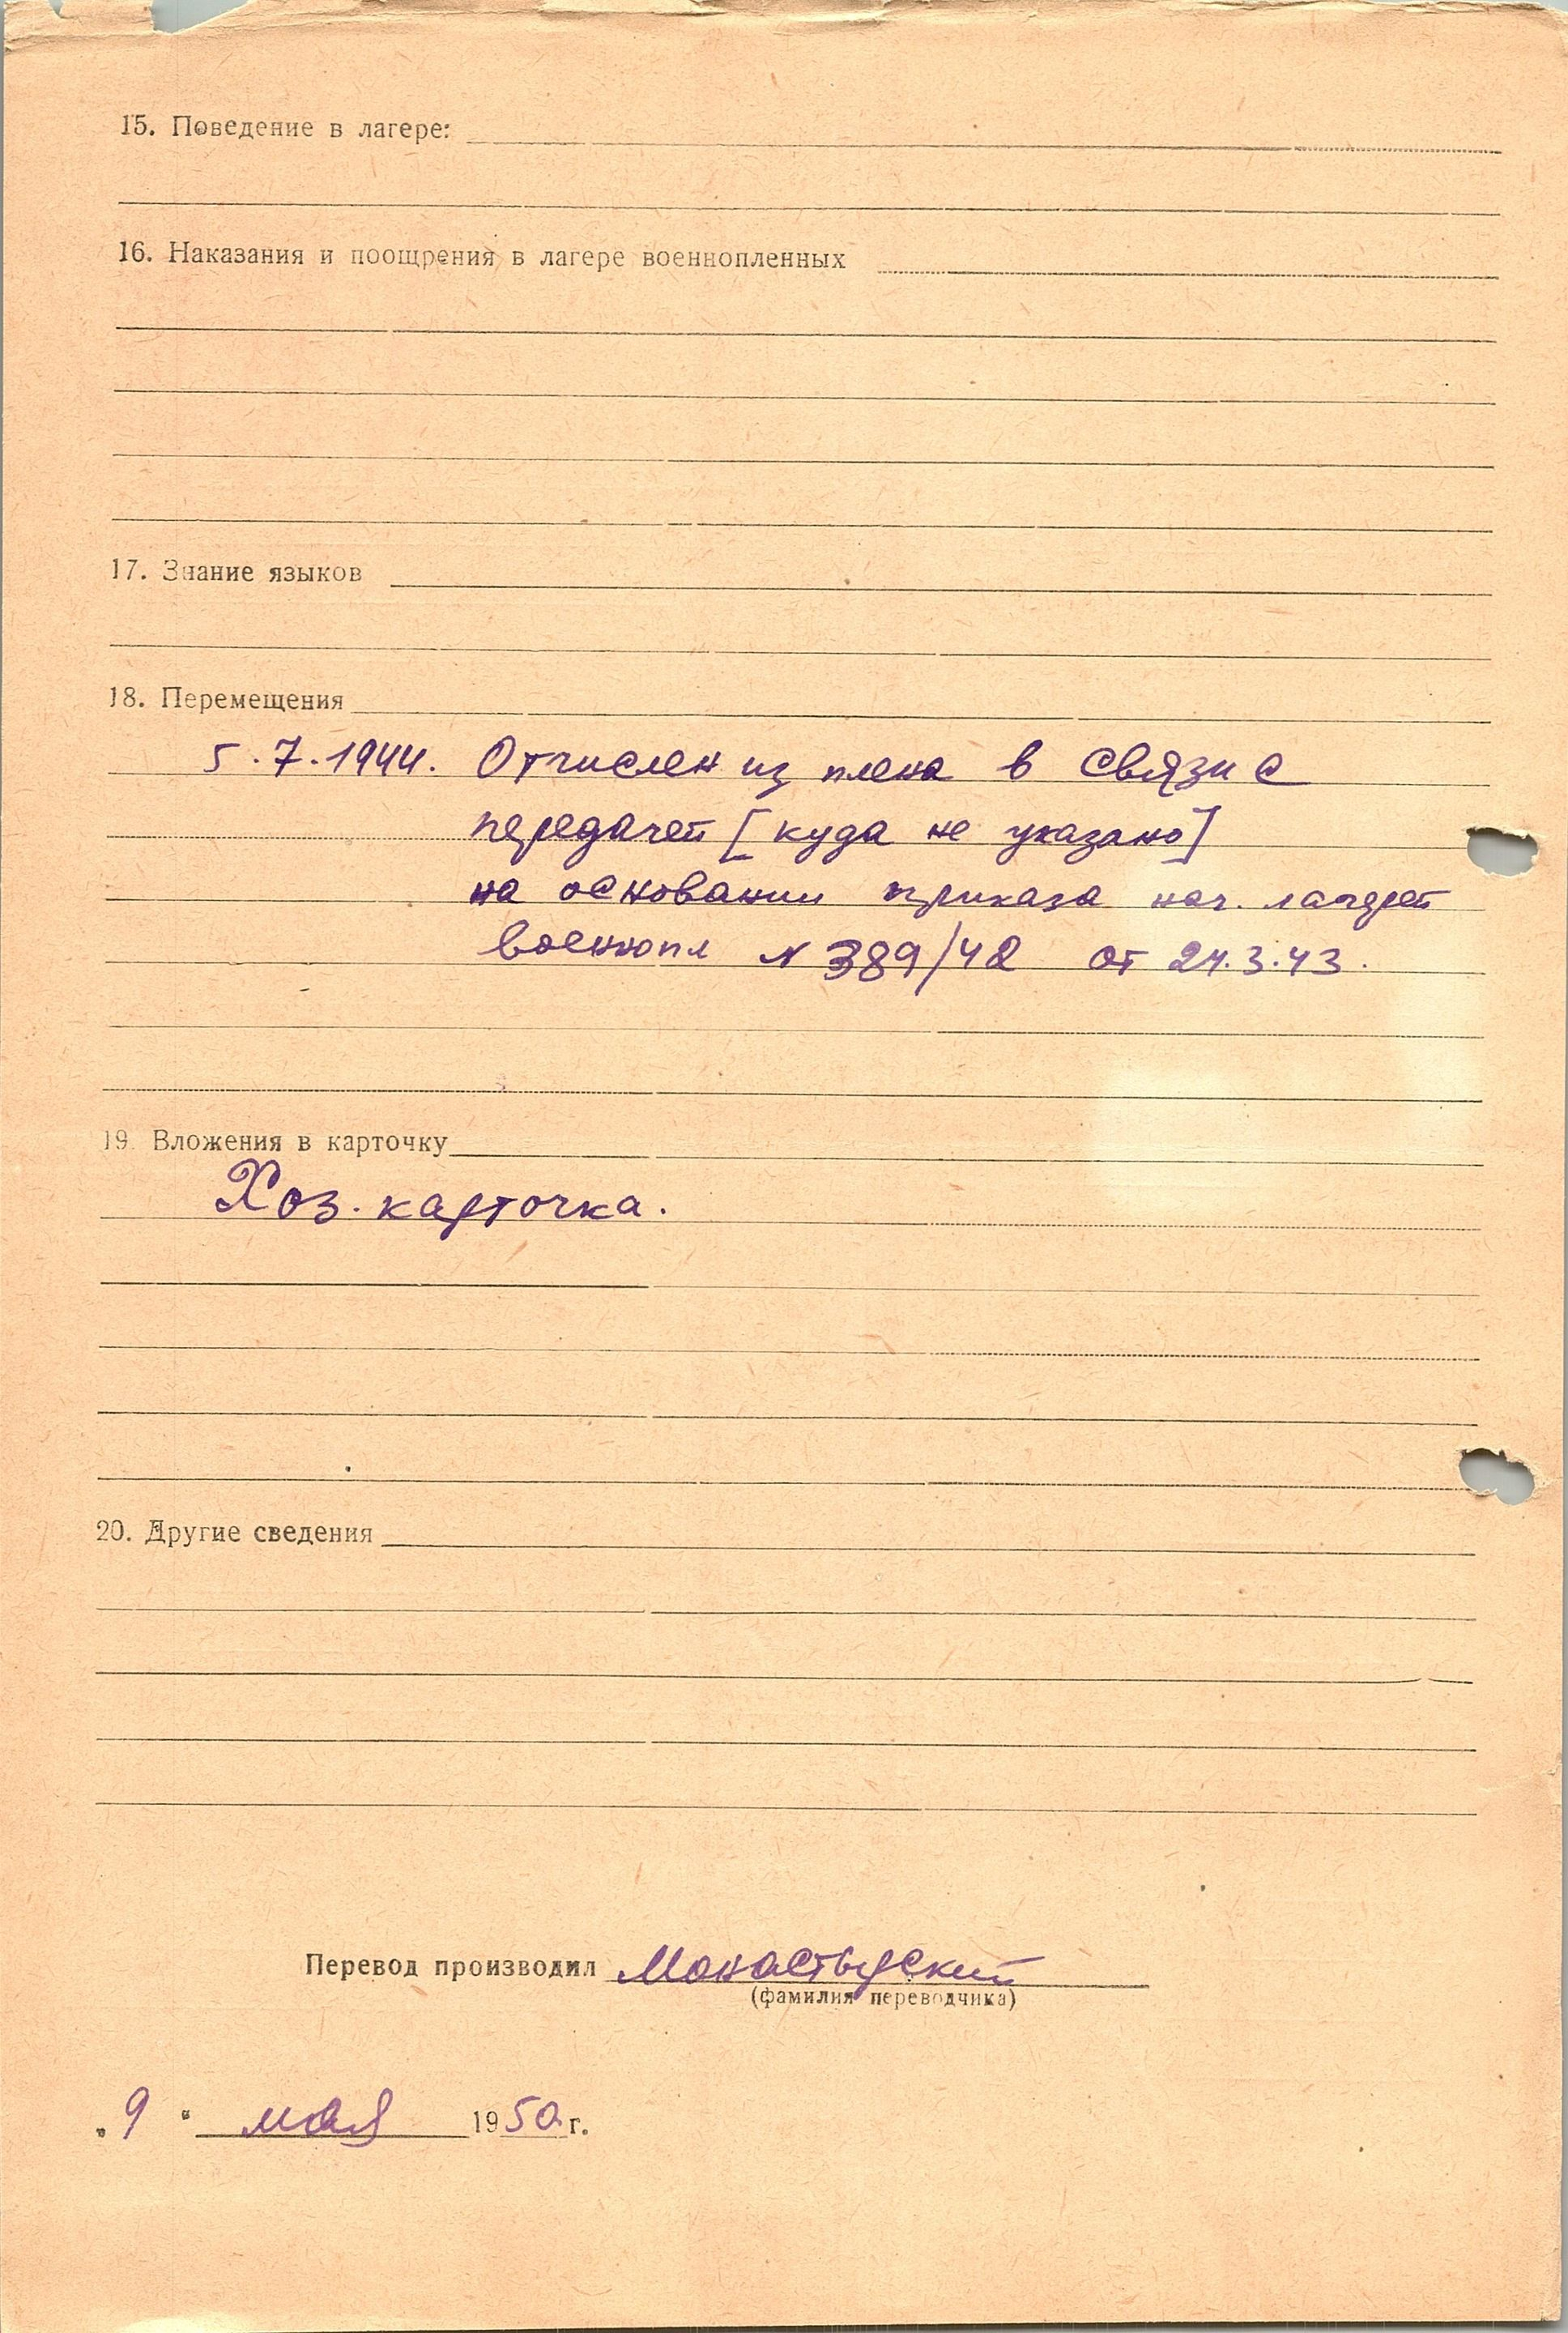 15. Поведение в лагере:
16. Наказания и поощрения в лагере военнопленных
17. Знание языков
18. Перемещения
5.7.1944. Отчислен из плена в связи с
передачей [куда не указано]
на основании приказа нач. лагерей
военнопл N 389/42 от 24.3.43.
19. Вложения в карточку
Хоз. карточка.
20. Другие сведения
Перевод производил Монастырский
(фамилия переводчика)
„9" мая 1950 г.